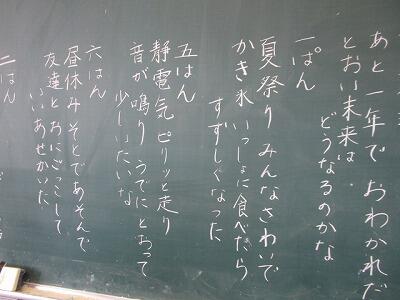 あと一年で おわかれだ
とおい未来は
どうなるのかな
一ぱん
夏祭り みんなさわいで
かき氷 いっしょに食べたら
すずしくなった
五はん
静電気 ピリッと走り
音が鳴り うでにとおって
少しいたいな
六はん
昼休み そとであそんで
友達と おにごっこして
いいあせかいた
二はん